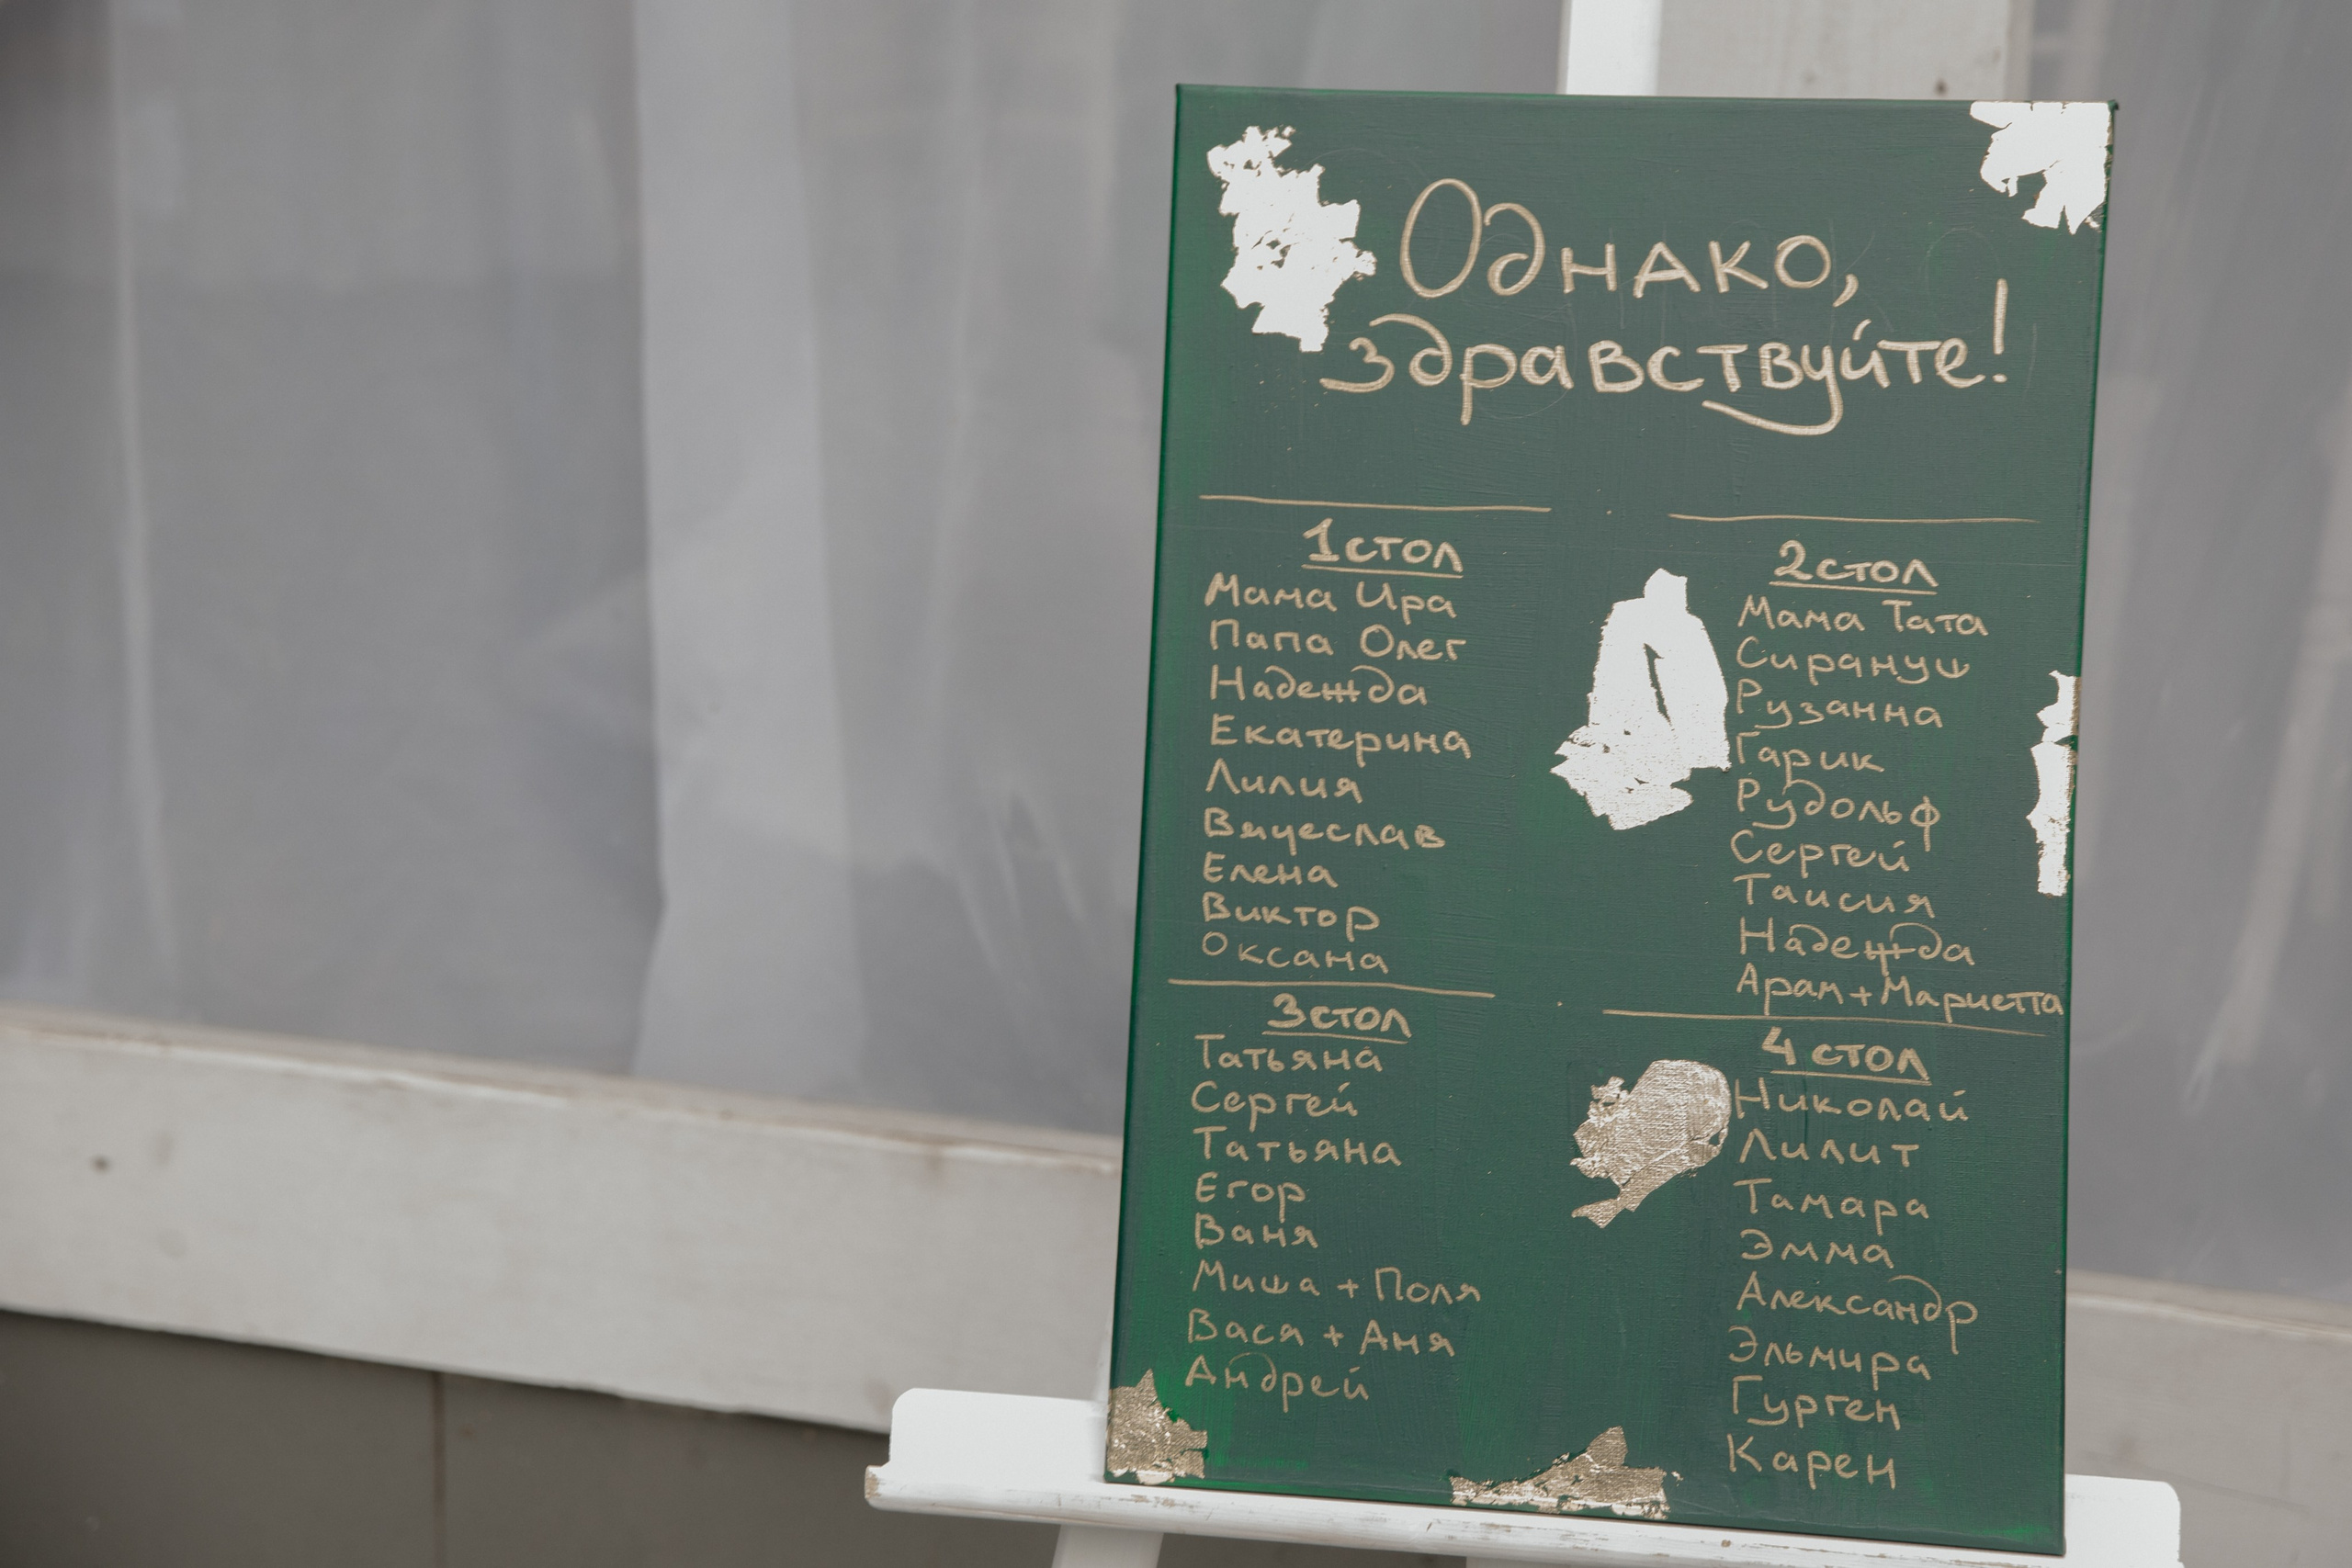 Однако,
здравствуйте!
1 стол
Мама Ира
Папа Олег
Надежда
Екатерина
Лилия
Вячеслав
Елена
Виктор
Оксана
2 стол
Мама Тата
Сирануш
Рузанна
Гарик
Рудольф
Сергей
Таисия
Надежда
Арам + Мариетта
3 стол
Татьяна
Сергей
Татьяна
Егор
Ваня
Миша + Поля
Вася + Аня
Андрей
4 стол
Николай
Лилит
Тамара
Эмма
Александр
Эльмира
Гурген
Карен